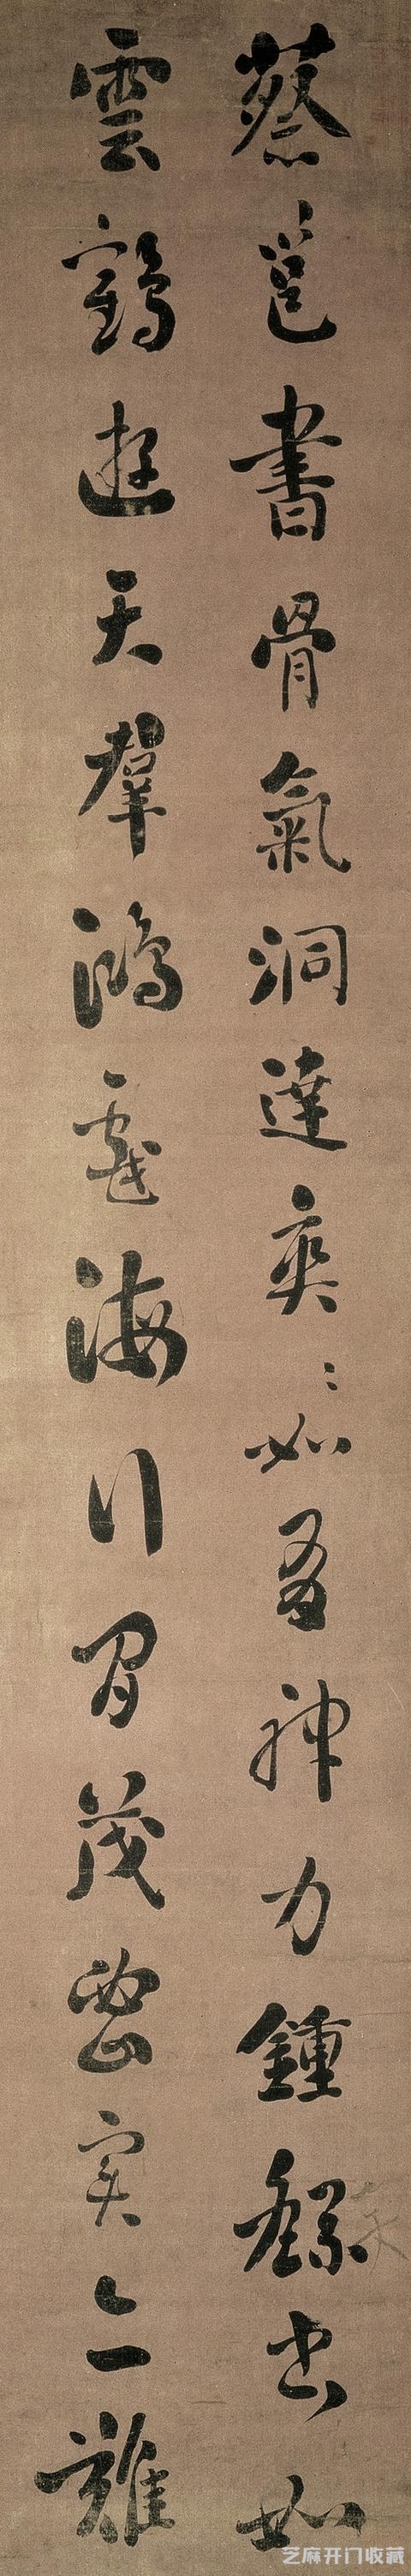 蔡邕書骨氣洞達爽〻如有神力鍾繇書如
雲鶴遊天群鴻戲海行間茂密實亦難
芝麻开门收藏